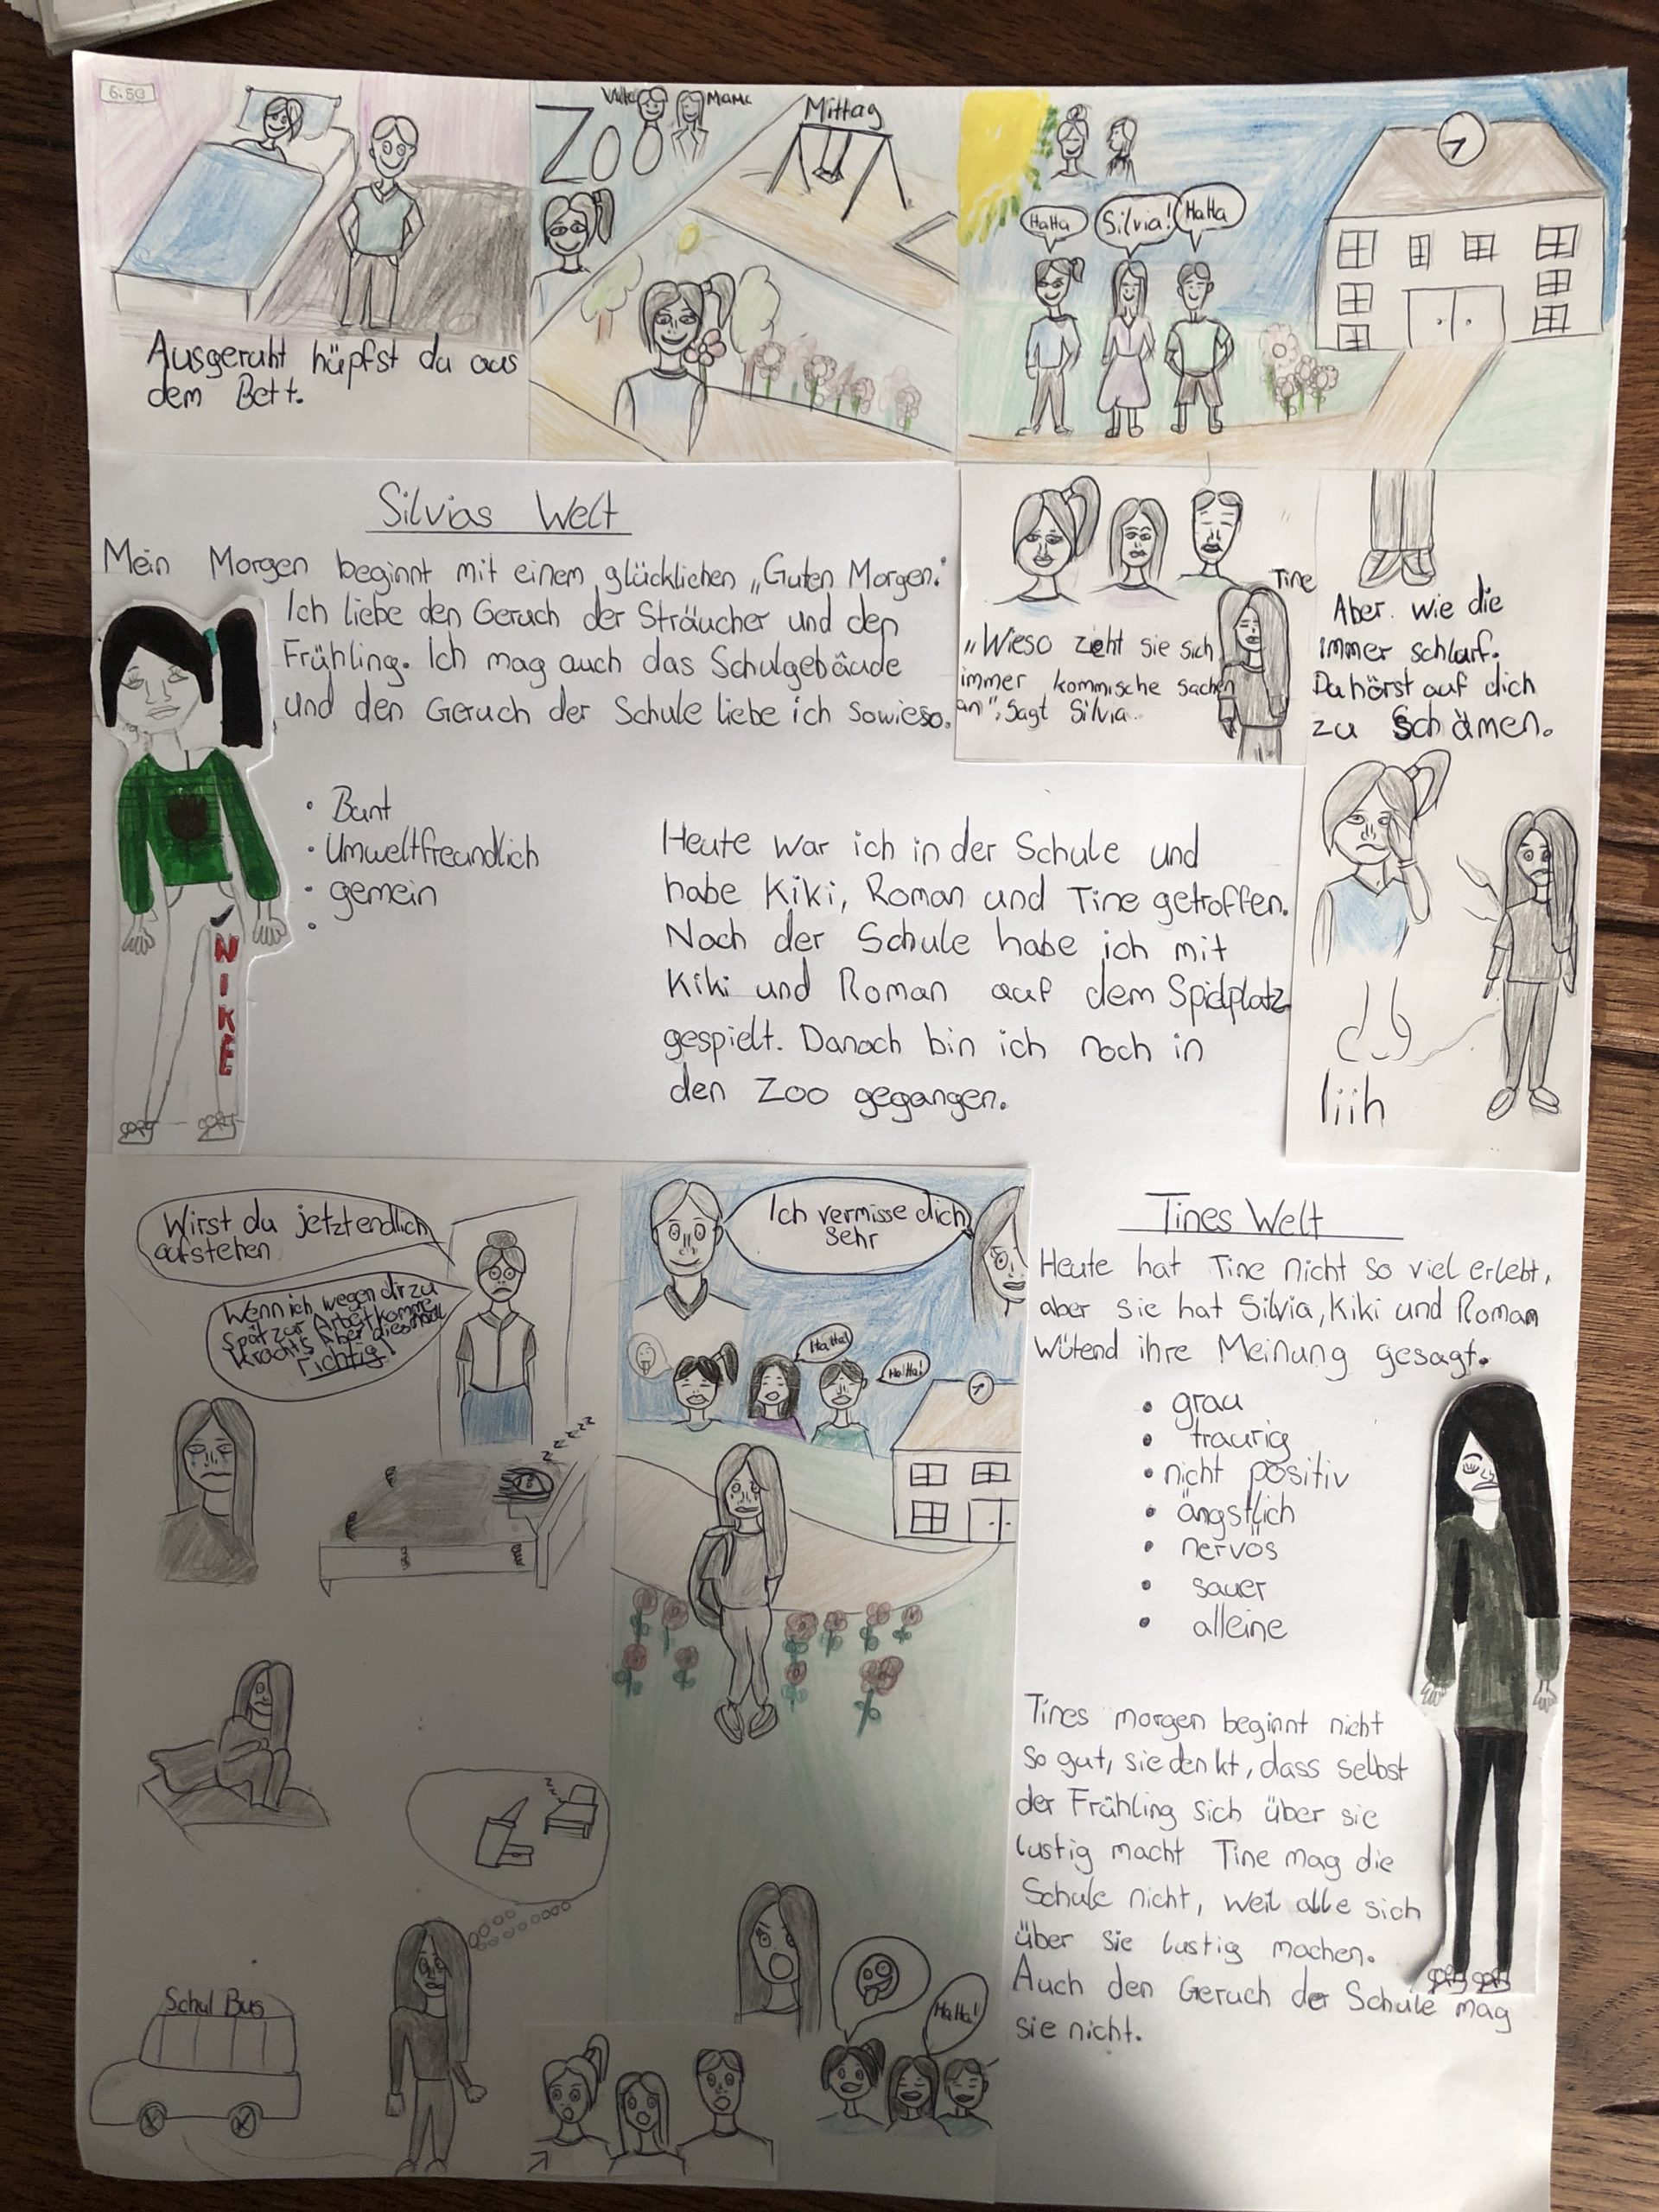 6:50
Ausgeruht hüpfst du aus
dem Bett.
ZOO
Mama
Mittag
HaHa
Silvia!
HaHa
Silvias Welt
Mein Morgen beginnt mit einem glücklichen „Guten Morgen."
Ich liebe den Geruch der Sträucher und den
Frühling. Ich mag auch das Schulgebäude
und den Geruch der Schule liebe ich sowieso.
• Bunt
• Umweltfreundlich
• gemein
•
NIKE
Heute war ich in der Schule und
habe Kiki, Roman und Tine getroffen.
Nach der Schule habe ich mit
Kiki und Roman auf dem Spielplatz
gespielt. Danach bin ich noch in
den Zoo gegangen.
Tine
„Wieso zieht sie sich
immer kommische sachen
an", sagt Silvia.
Aber wie die
immer schlurf.
Da hörst auf dich
zu Schämen.
Iiih
Wirst du jetzt endlich
aufstehen
Wenn ich wegen dir zu
Spät zur Arbeit komme
krachts Aber diesmal
richtig!
Schul Bus
Ich vermisse dich
Sehr
HaHa!
HaHa!
HaHa!
Tines Welt
Heute hat Tine nicht so viel erlebt,
aber sie hat Silvia, Kiki und Roman
Wütend ihre Meinung gesagt.
• grau
• traurig
• nicht positiv
• ängstlich
• nervös
• sauer
• alleine
Tines morgen beginnt nicht
so gut, sie denkt, dass selbst
der Frühling sich über sie
lustig macht Tine mag die
Schule nicht, weil alle sich
über sie lustig machen.
Auch den Geruch der Schule mag
sie nicht.